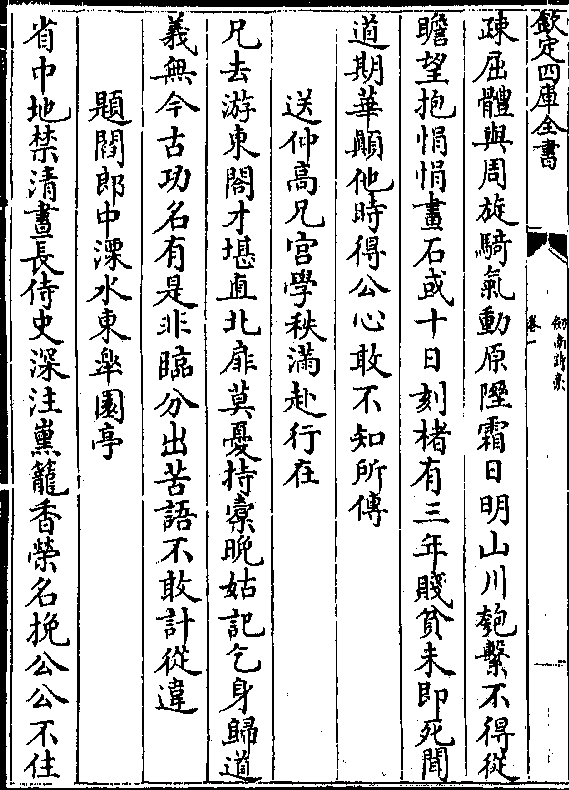 欽定四庫全書
劍南詩稾
卷一
疎屈體與周旋騎氣動原隰霜日明山川匏繫不得從
瞻望抱悁悁畫石或十日刻楮有三年賤貧未即死聞
道期華顛他時得公心敢不知所傳
送仰高兄宫學秩滿赴行在
兄去游東閣才堪直北扉莫憂持橐晩姑記乞身歸道
義無今古功名有是非臨分出苦語不敢計從違
題閻郎中溧水東臯園亭
省中地禁清晝長侍史深注薫籠香榮名挽公公不住